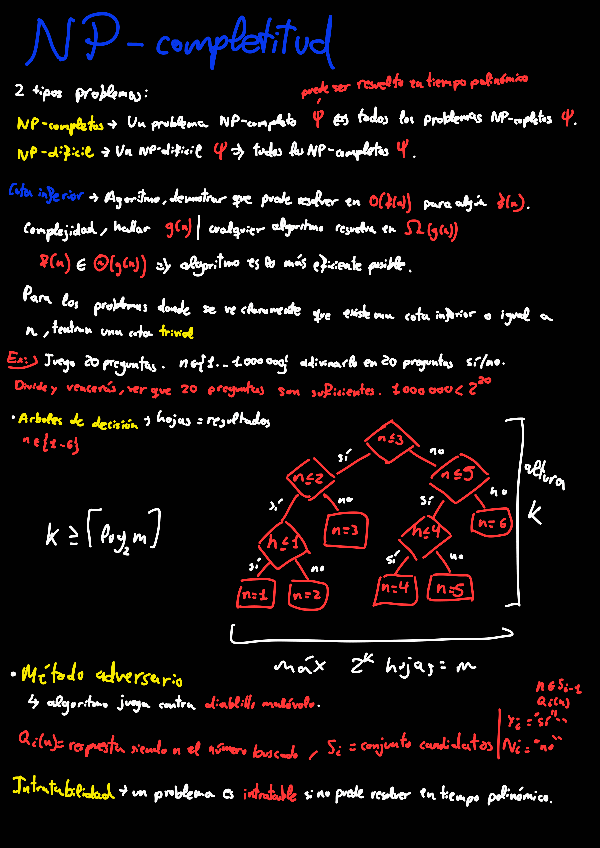 NP-completitud
2 tipos problemas:
puede ser resuelto en tiempo polinómico
NP-completos → Un problema NP-completo φ ⇔ todos los problemas NP-copletos φ.
NP-difícil → Un NP-difícil φ ⇒ todos los NP-completos φ.
Cota inferior → Agoritmo, demostrar que puede resolver en O(f(n)) para algún f(n).
Complejidad, hallar g(n) | cualquier algoritmo resuelva en Ω(g(n))
f(n) ∈ Θ(g(n)) ⇒ algoritmo es lo más eficiente posible.
Para los problemas donde se ve claramente que existe una cota inferior o igual a
n, tendrán una cota trivial
Ex:) Juego 20 preguntas. n∈{1..1000000} adivinarlo en 20 preguntas sí/no.
Divide y vencerás, ver que 20 preguntas son suficientes. 1000000<2^20
• Arboles de decisión → hojas = resultados
n∈{1-6}
n≤3
sí no
n≤2 n≤5
sí no sí no
n≤1 n=3 n≤4 n=6
sí no sí no
n=1 n=2 n=4 n=5
altura
K
K ≥ ⌈log₂ m⌉
máx 2^k hojas = m
• Método adversario
↳ algoritmo juega contra diablillo malévolo.
n∈Si-1
Qi(n)
Qi(n)= respuesta siendo n el número buscado, Si = conjunto candidatos | Yi = "sí"
Ni = "no"
Intratabilidad → un problema es intratable si no puede resolver en tiempo polinómico.